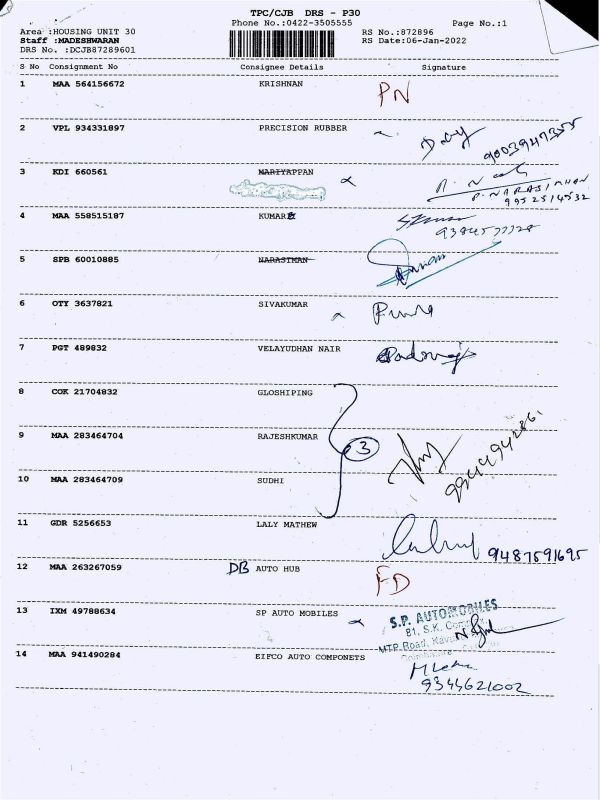 TPC/CJB DRS - P30
Phone No.:0422-3505555 Page No.:1
Area :HOUSING UNIT 30 RS No.:872896
Staff :MADESHWARAN RS Date:06-Jan-2022
DRS No. :DCJB87289601
S No Consignment No Consignee Details Signature
1 MAA 564156672 KRISHNAN PN
2 VPL 934331897 PRECISION RUBBER
9003947355
3 KDI 660561 MARIYAPPAN
P. NARASIMHAN
9952514532
4 MAA 558515187 KUMAR
5 SPB 60010885 NARASIMAN
6 OTY 3637821 SIVAKUMAR
7 PGT 489832 VELAYUDHAN NAIR
8 COK 21704832 GLOSHIPING
9 MAA 283464704 RAJESHKUMAR 3
10 MAA 283464709 SUDHI
11 GDR 5256653 LALY MATHEW
9487591695
12 MAA 263267059 DB AUTO HUB FD
13 IXM 49788634 SP AUTO MOBILES
S.P. AUTOMOBILES
81, S.K.
MTP Road,
Coimbatore
14 MAA 941490284 EIFCO AUTO COMPONETS
9344621002